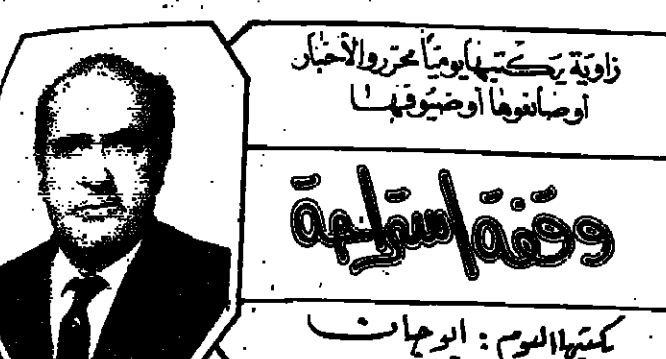 زاوية يكتبها يوميًا محررو الأخبار
أو صانعوها أو ضيوفها
وقفة استراحة
يكتبها اليوم : ابو حيان